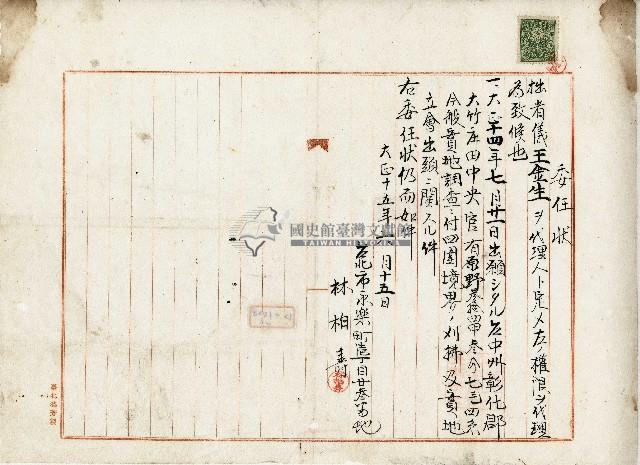 委任状
拙者儀王金生ヲ代理人ト定メ左ノ權限ヲ代理
為致候也
一、大正十四年七月廿一日出願シタル台中州彰化郡
大竹庄田中央官有原野叁拾甲叁分七毛四糸
今般貴地調査ニ付四圍境界ノ刈拂及貴地
立會出頭ニ関スル件
右委任状仍而如件
大正十五年 月十五日
台北市永樂町壹丁目廿叁番地
林柏壽
國史館臺灣文獻館
TAIWAN HISTORICA